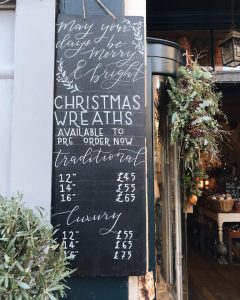 May your
days be
Merry
& bright
CHRISTMAS
WREATHS
AVAILABLE TO
PRE ORDER NOW
traditional
12" £45
14" £55
16" £65
luxury
12" £55
14" £65
16" £75